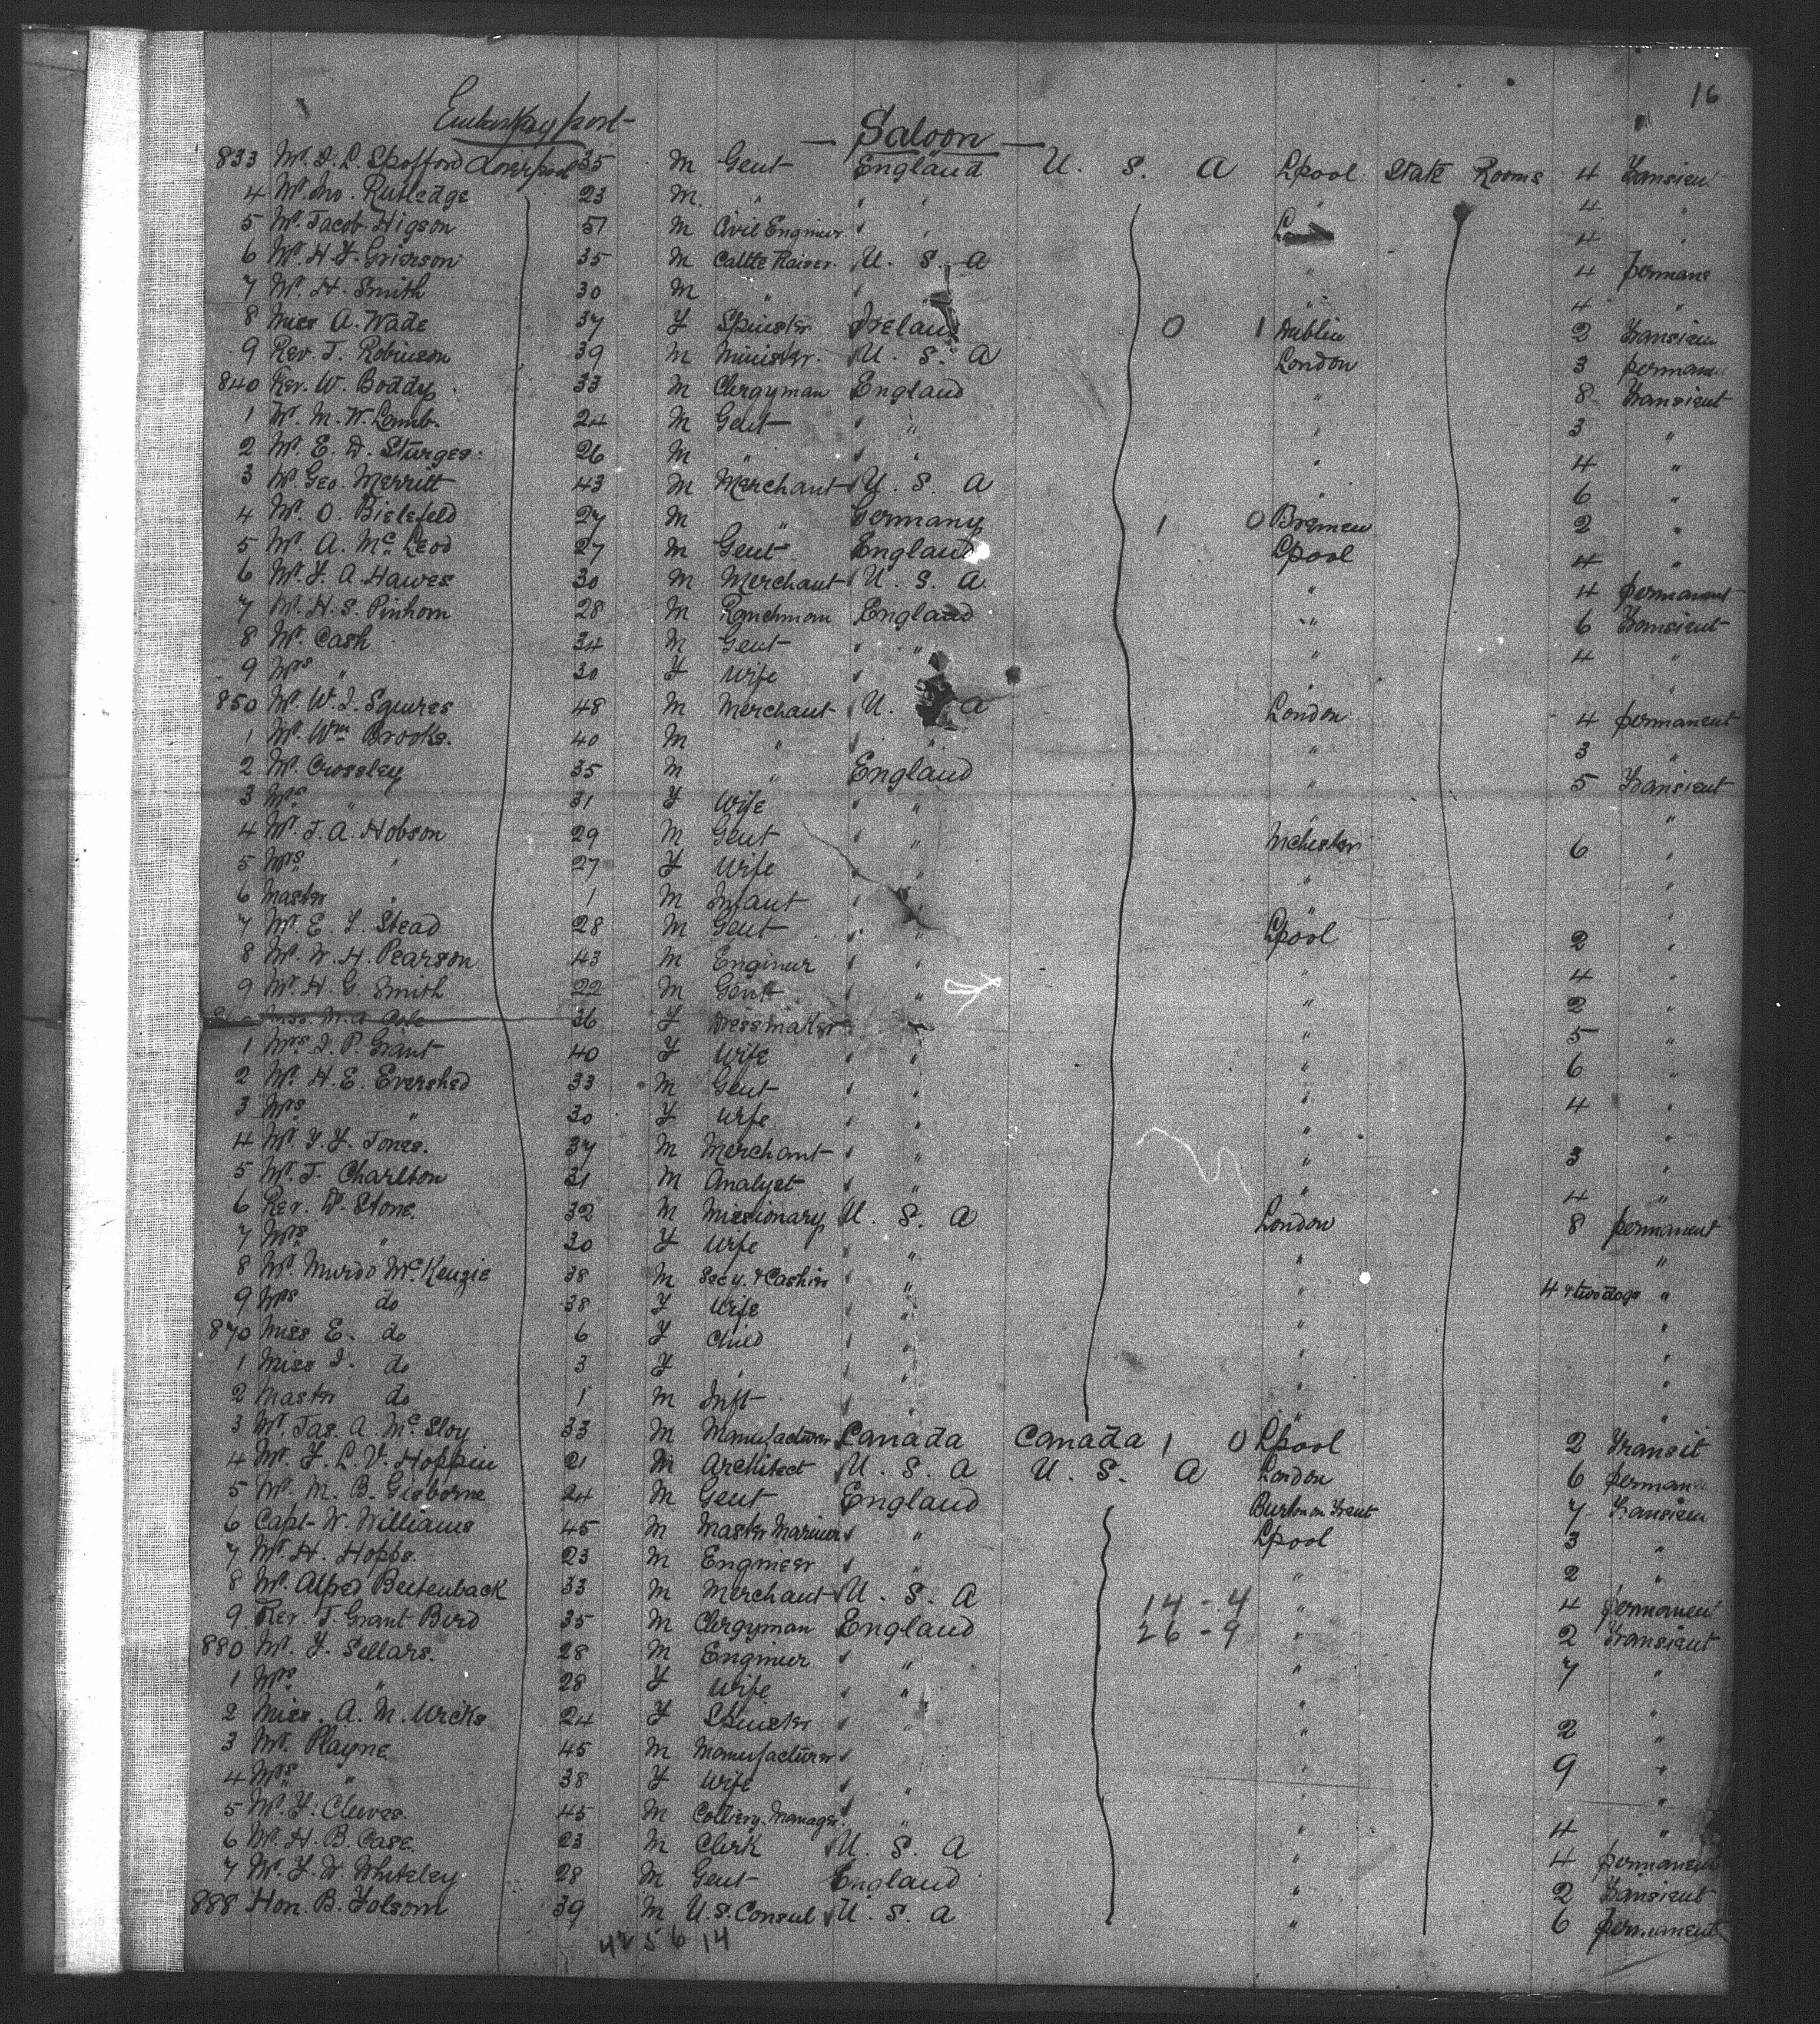 16
Embarkg port
— Saloon —
833 Mr. I. L. Spofford Liverpool 35 M Gent England U. S. A Lpool State Rooms 4 Transien
4 Mr. Jno. Rutledge 23 M. " " " " 4 "
5 Mr. Jacob Higson 51 M Civil Engineer " " 4 "
6 Mr. H. F. Grierson 35 M Cattle Raiser. U. S. A " 4 permane
7 Mr. H. Smith 30 M " " " 4 "
8 Miss A. Wade 37 F Spinster Ireland 0 1 Dublin 2 Transien
9 Rev. J. Robinson 39 M Minister. U. S. A London 3 perman
840 Rev. W. Boddy 33 M Clergyman England " 8 Transient
1 Mr. M. W. Lamb. 24 M Gent " " " 3 "
2 Mr. E. D. Sturges 26 M " " " " 4 "
3 Mr. Geo. Merritt 43 M Merchant U. S. A " 6 "
4 Mr. O. Bielefeld 27 M " Germany 1 0 Bremen 2 "
5 Mr. A. McLeod 27 M Gent England Lpool 4 "
6 Mr. F. A. Hawes 30 M Merchant U. S. A " 4 permanent
7 Mr. H. S. Pinhorn 28 M Ranchman England " 6 Transient
8 Mr. Cash 34 M Gent " " " 4 "
9 Mrs " 30 F Wife " " "
850 Mr. W. I. Squires 48 M Merchant U. A London 4 permanent
1 Mr. Wm Brooks. 40 M " " " " 3 "
2 Mr. Crossley 35 M " England " 5 Transient
3 Mrs " 31 F Wife " " " "
4 Mr. J. A. Hobson 29 M Gent " " Mchester 6 "
5 Mrs " 27 F Wife " " " "
6 Master " 1 M Infant " " " "
7 Mr. E. F. Stead 28 M Gent " " Lpool 2 "
8 Mr. W. H. Pearson 43 M Engineer " " " 4 "
9 Mr. H. G. Smith 22 M Gent " " " 2 "
36 F Dressmaker " " " 5 "
1 Mrs I. P. Grant 40 F Wife " " " 6 "
2 Mr. H. E. Evershed 33 M Gent " " " 4 "
3 Mrs " 30 F Wife " " " "
4 Mr. F. F. Jones. 37 M Merchant " " " 3 "
5 Mr. J. Charlton 31 M Analyst " " " 4 "
6 Rev. D. Stone. 32 M Missionary U. S. A London 8 permanent
7 Mrs " 30 F Wife " " " "
8 Mr. Murdo McKenzie 38 M Secy. & Cashier " " " 4 & two dogs "
9 Mrs do 38 F Wife " " " "
870 Miss E. do 6 F Child " " " "
1 Miss I. do 3 F " " " " "
2 Master do 1 M Inft " " " "
3 Mr. Jas. A. McSloy 33 M Manufacturer Canada Canada 1 0 Lpool 2 Transit
4 Mr. F. L. V. Hoppin 21 M Architect U. S. A U. S. A London 6 perman
5 Mr. M. B. Gisborne 24 M Gent England Burton on Trent 7 Transien
6 Capt. W. Williams 45 M Master Mariner " " Lpool 3 "
7 Mr. H. Hopps. 23 M Engineer " " " 2 "
8 Mr. Alfred Beitenback 33 M Merchant U. S. A 14 - 4 " 4 permanent
9 Rev. J. Grant Bird 35 M Clergyman England 26 - 9 " 2 Transient
880 Mr. F. Sellars. 28 M Engineer " " " 7 "
1 Mrs " 28 F Wife " " " "
2 Miss. A. M. Wicks 24 F Spinster " " " 2 "
3 Mr. Playne 45 M Manufacturer " " 9 "
4 Mrs " 38 F Wife " " " "
5 Mr. F. Cleeves. 45 M Colliery Manager " " " 4 "
6 Mr. H. B. Case. 23 M Clerk U. S. A " 4 permanen
7 Mr. F. W. Whiteley 28 M Gent England " 2 Transient
888 Hon. B. Folsom 39 M U.S. Consul U. S. A " 6 permanent
42 5 6 14